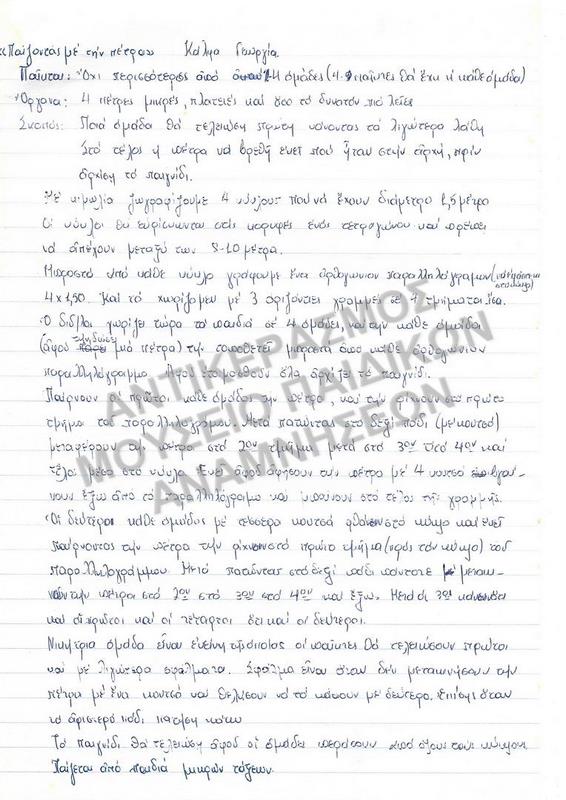 «Παίζοντας με την πέτρα» Κάλμα Γεωργία.
Παίκται: Όχι περισσότερες από 4 ομάδες (4-9 παίκτες θα έχη η κάθε ομάδα)
Όργανα: 4 πέτρες μικρές, πλατειές και όσο το δυνατόν πιο λείες
Σκοπός: Ποιά ομάδα θα τελειώση πρώτη κάνοντας τα λιγώτερα λάθη
Στο τέλος η πέτρα να βρεθή εκεί που ήταν στην αρχή, πρίν
αρχίση το παιγνίδι.
Με κιμωλία ζωγραφίζουμε 4 κύκλους πού να έχουν διάμετρο 1,5 μέτρο
Οι κύκλοι θα ευρίσκωνται στις κορυφές ενός τετραγώνου και πρέπει
να απέχουν μεταξύ των 8-10 μέτρα.
Μπροστά από κάθε κύκλο γράφουμε ένα ορθογώνιον παραλληλόγραμμον
4x1,50. Και το χωρίζομεν με 3 οριζόντιες γραμμές σε 4 τμήματα ίσα.
Ο διδ/λος χωρίζει τώρα τα παιδιά σε 4 ομάδες, και την κάθε ομάδα
(αφού της δώσει μιά πέτρα) την τοποθετεί μπροστά από κάθε ορθογώνιον
παραλληλόγραμμο. Αφού ετοιμασθούν όλα αρχίζει το παιγνίδι.
Παίρνουν οι πρώτοι κάθε ομάδας την πέτρα και την ρίχνουν στο πρώτο
τμήμα του παραλληλογράμμου. Μετά πατώντας στο δεξί πόδι (με κουτσό)
μεταφέρουν την πέτρα στο 2ον τμήμα μετά στο 3ον στο 4ον και
τέλος μέσα στο κύκλο. Εκεί αφού αφήσουν την πέτρα με 4 κουτσά βγαί-
νουν έξω από το παραλληλόγραμμο και μπαίνουν στο τέλος της γραμμής.
Οι δεύτεροι κάθε ομάδος με τέσσερα κουτσά φθάνουν στο κύκλο και εκεί
παίρνοντας την πέτρα την ρίχνουν στο πρώτο τμήμα (προς τον κύκλο) του
παραλληλογράμμου. Μετά πατώντας στο δεξί πόδι πάντοτε μετακι-
νούν την πέτρα στο 2ον στο 3ον στο 4ον και έξω. Μετά οι 3οι κάνουν
και οι πρώτοι και οι τέταρτοι ότι και οι δεύτεροι.
Νικήτρια ομάδα είναι εκείνη της οποίας οι παίκτες θα τελειώσουν πρώτοι
και με λιγώτερα σφάλματα. Σφάλμα είναι όταν δεν μετακινήσουν την
πέτρα με ένα κουτσό και θελήσουν να το κάνουν με δεύτερο. Επίσης όταν
το αριστερό πόδι πατήση κάτω
Το παιγνίδι θα τελειώση αφού οι ομάδες περάσουν από όλους τους κύκλους.
Παίζεται από παιδιά μικρών τάξεων.
ΑΝΤΙΚΕΡΑΣΜΟΣ
ΜΟΥΣΕΙΟ ΠΑΙΔΙΚΩΝ
ΑΝΑΜΝΗΣΕΩΝ